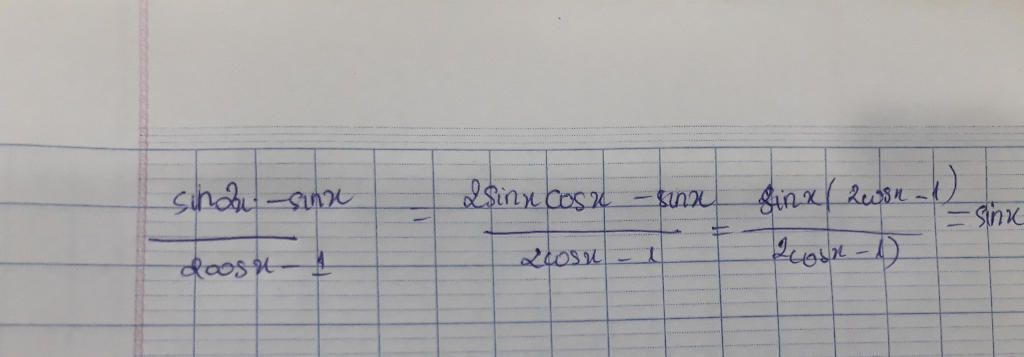 sin2x - sinx / 2cosx - 1 = 2sinx cosx - sinx / 2cosx - 1 = sinx(2cosx - 1) / 2cosx - 1) = sinx